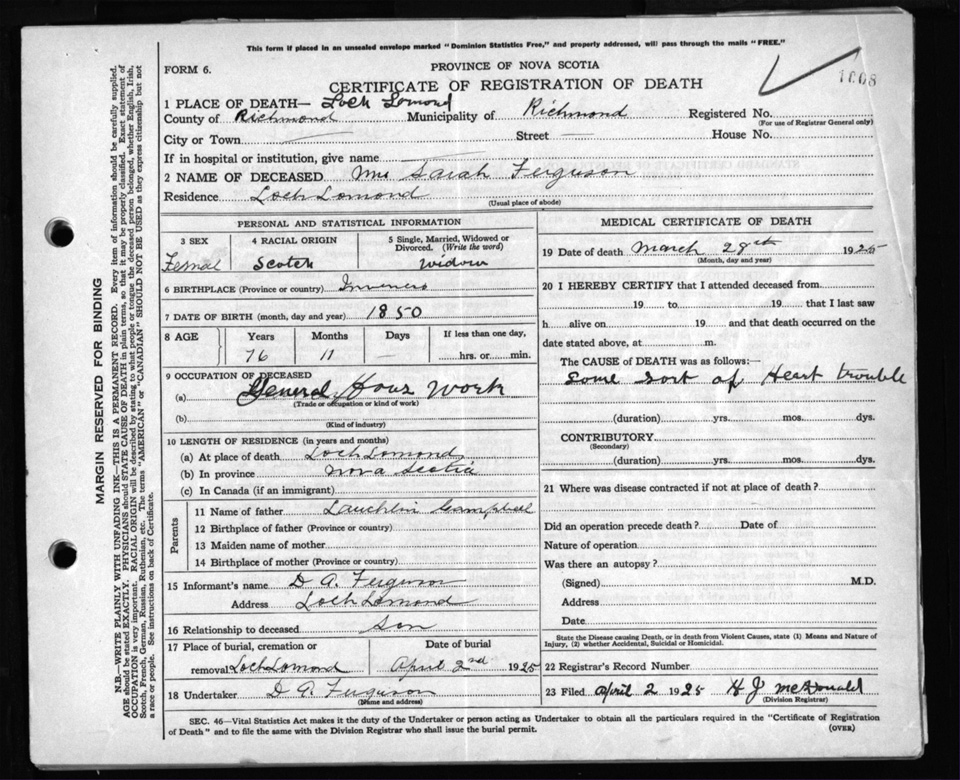 This form if placed in an unsealed envelope marked "Dominion Statistics Free," and properly addressed, will pass through the mails "FREE."
FORM 6.
PROVINCE OF NOVA SCOTIA
CERTIFICATE OF REGISTRATION OF DEATH
1008
1 PLACE OF DEATH— Loch Lomond
County of Richmond Municipality of Richmond Registered No.
(For use of Registrar General only)
City or Town Street House No.
If in hospital or institution, give name
2 NAME OF DECEASED Mrs Sarah Ferguson
Residence Loch Lomond
(Usual place of abode)
PERSONAL AND STATISTICAL INFORMATION
3 SEX 4 RACIAL ORIGIN 5 Single, Married, Widowed or
Divorced. (Write the word)
Femal Scotch widow
6 BIRTHPLACE (Province or country)
7 DATE OF BIRTH (month, day and year) 1850
8 AGE Years Months Days If less than one day,
76 11 — hrs. or min.
9 OCCUPATION OF DECEASED
(a) General Hous Work
(Trade or occupation or kind of work)
(b)
(Kind of industry)
10 LENGTH OF RESIDENCE (in years and months)
(a) At place of death Loch Lomond
(b) In province Nova Scotia
(c) In Canada (if an immigrant)
Parents
11 Name of father Lauchlin Campbell
12 Birthplace of father (Province or country)
13 Maiden name of mother
14 Birthplace of mother (Province or country)
15 Informant's name D A. Ferguson
Address Loch Lomond
16 Relationship to deceased Son
17 Place of burial, cremation or Date of burial
removal Loch Lomond April 2nd 1925
18 Undertaker D A. Ferguson
(Name and address)
MEDICAL CERTIFICATE OF DEATH
19 Date of death March 28th 1925
(Month, day and year)
20 I HEREBY CERTIFY that I attended deceased from
19 to 19 that I last saw
h alive on 19 and that death occurred on the
date stated above, at m.
The CAUSE of DEATH was as follows:—
Some sort of Heart trouble
(duration) yrs. mos. dys.
CONTRIBUTORY
(Secondary)
(duration) yrs. mos. dys.
21 Where was disease contracted if not at place of death?
Did an operation precede death? Date of
Nature of operation
Was there an autopsy?
(Signed) M.D.
Address
Date
State the Disease causing Death, or in death from Violent Causes, state (1) Means and Nature of
Injury, (2) whether Accidental, Suicidal or Homicidal.
22 Registrar's Record Number
23 Filed April 2 1925 H J McDonald
(Division Registrar)
SEC. 46—Vital Statistics Act makes it the duty of the Undertaker or person acting as Undertaker to obtain all the particulars required in the "Certificate of Registration
of Death" and to file the same with the Division Registrar who shall issue the burial permit.
(OVER)
MARGIN RESERVED FOR BINDING
N.B.—WRITE PLAINLY WITH UNFADING INK—THIS IS A PERMANENT RECORD. Every item of information should be carefully supplied.
AGE should be stated EXACTLY. PHYSICIANS should STATE CAUSE OF DEATH in plain terms, so that it may be properly classified. Exact statement of
OCCUPATION is very important. RACIAL ORIGIN will be described by stating to what people or tongue the deceased person belonged, whether English, Irish,
Scotch, French, German, Russian, Ruthenian, etc. The terms "AMERICAN" or "CANADIAN" SHOULD NOT BE USED as they express citizenship but not
a race or people. See instructions on back of Certificate.